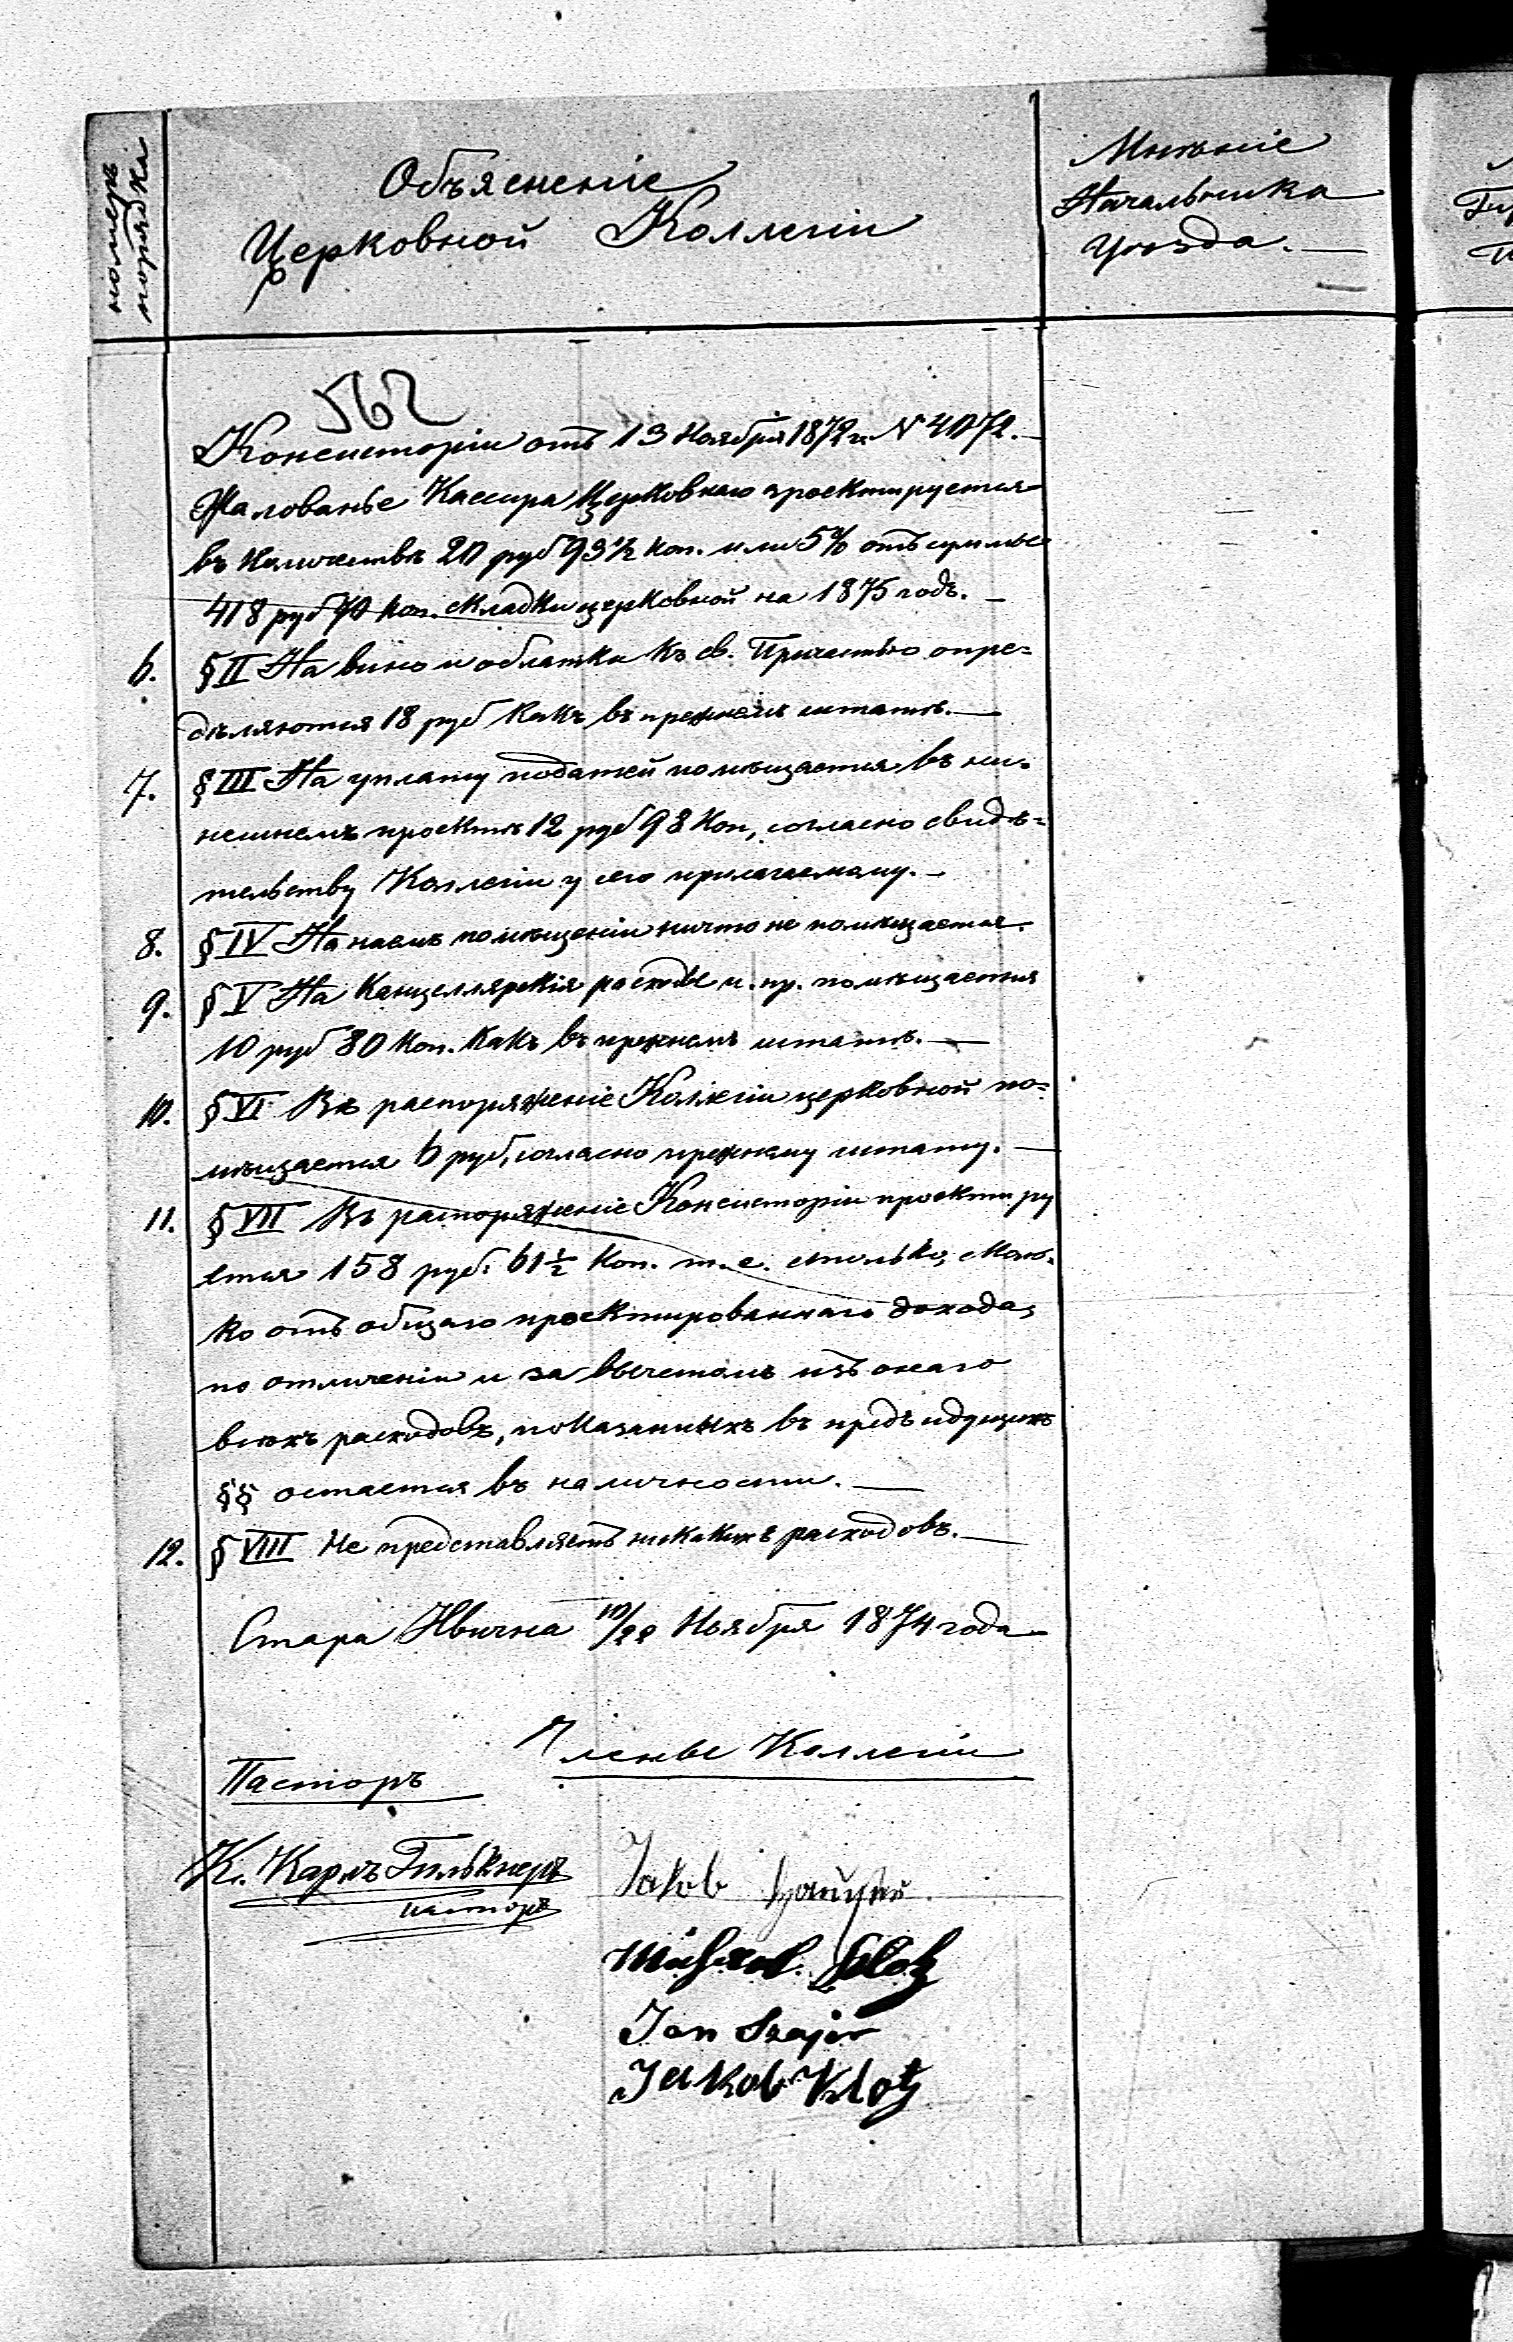 номера по порядку
Объясненіе
Церковной Коллегіи
Мнѣніе
Начальника
Уѣзда. —
562
Консисторіи отъ 13 Ноября 1872 г. № 4072. —
Жалованье Кассира Церковнаго проектируется
въ количествѣ 20 руб 93½ коп. или 5% отъ суммы
418 руб 70 коп. складки церковной на 1875 годъ. —
6. § II На вино и облатки къ св. Причастью опре=
дѣляются 18 руб какъ въ прежнемъ штатѣ. —
7. § III На уплату податей помѣщается въ ни=
нешнемъ проектѣ 12 руб 98 коп, согласно свидѣ=
тельству Коллегіи у сего прилагаемому. —
8. § IV На наемъ помѣщеніи ничто не помѣщается.
9. § V На Канцеллярскія расходы и. пр. помѣщается
10 руб 80 коп. какъ въ прежнемъ штатѣ. —
10. § VI Въ распоряженіе Коллегіи церковной по=
мѣщается 6 руб, согласно прежнему штату. —
11. § VII Въ распоряженіе Консисторіи проектиру
ется 158 руб. 61½ коп. т. е. столько, сколь=
ко отъ общаго проектированнаго дохода,
по отличеніи и за вычетомъ изъ онаго
всѣхъ расходовъ, показанныхъ въ предъидущихъ
§§ остается въ наличности. —
12. § VIII Не представляетъ никакихъ расходовъ. —
Стара Ивична 10/22 Ноября 1874 года
Члены Коллегіи
Пасторъ
К. Карлъ Гилькнеръ
пасторъ
Jakob
Michael Klotz
Jan Szajer
Jakob Klotz